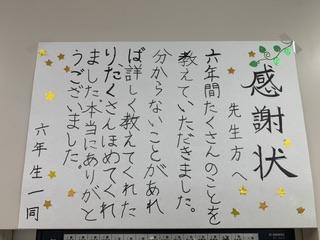 感謝状
先生方へ
六年間たくさんのことを
教えていただきました。
分からないことがあれ
ば詳しく教えてくれた
り、たくさんほめてくれ
ました。本当にありがと
うございました。
六年生一同